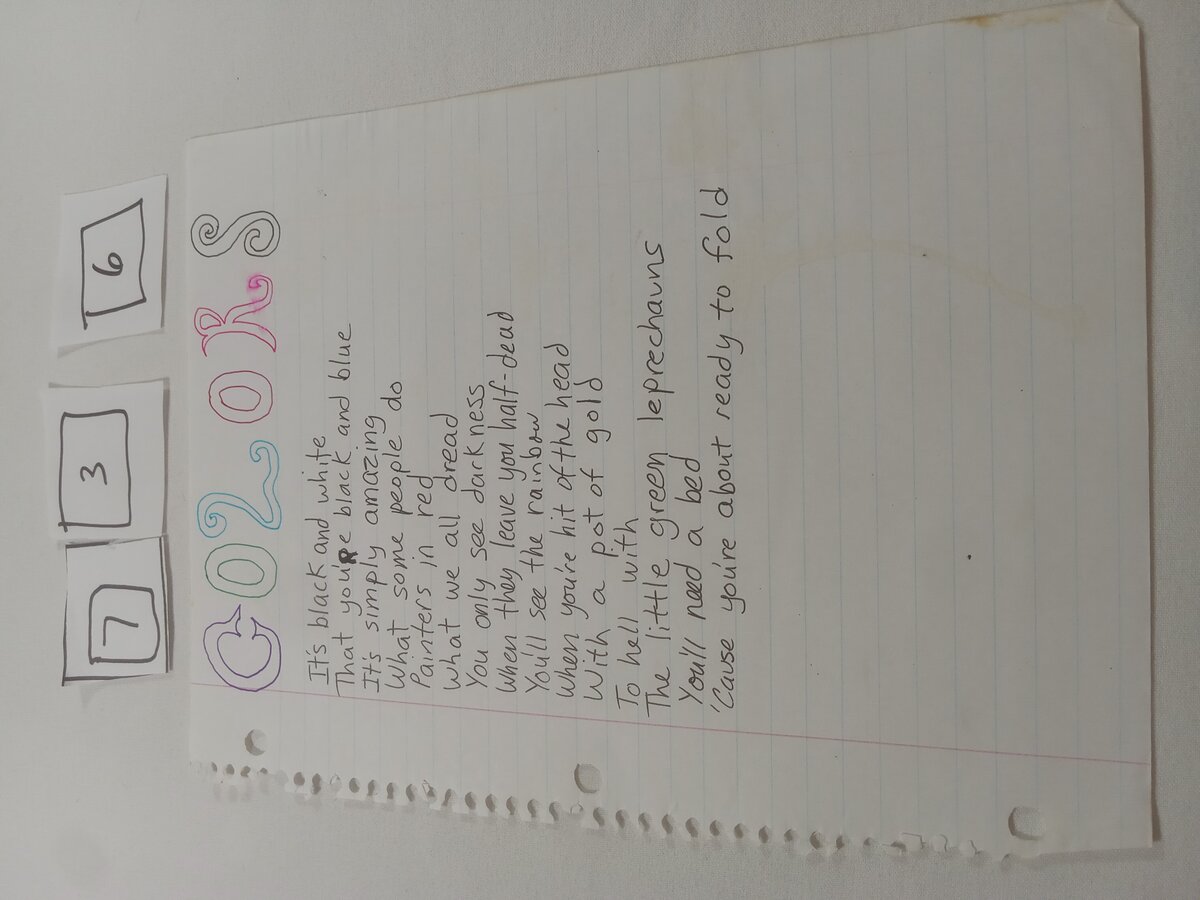 7 3 6
COLORS
It's black and white
That you're black and blue
It's simply amazing
What some people do
Painters in red
What we all dread
You only see darkness
When they leave you half-dead
You'll see the rainbow
When you're hit of the head
With a pot of gold
To hell with
The little green leprechauns
You'll need a bed
'Cause you're about ready to fold